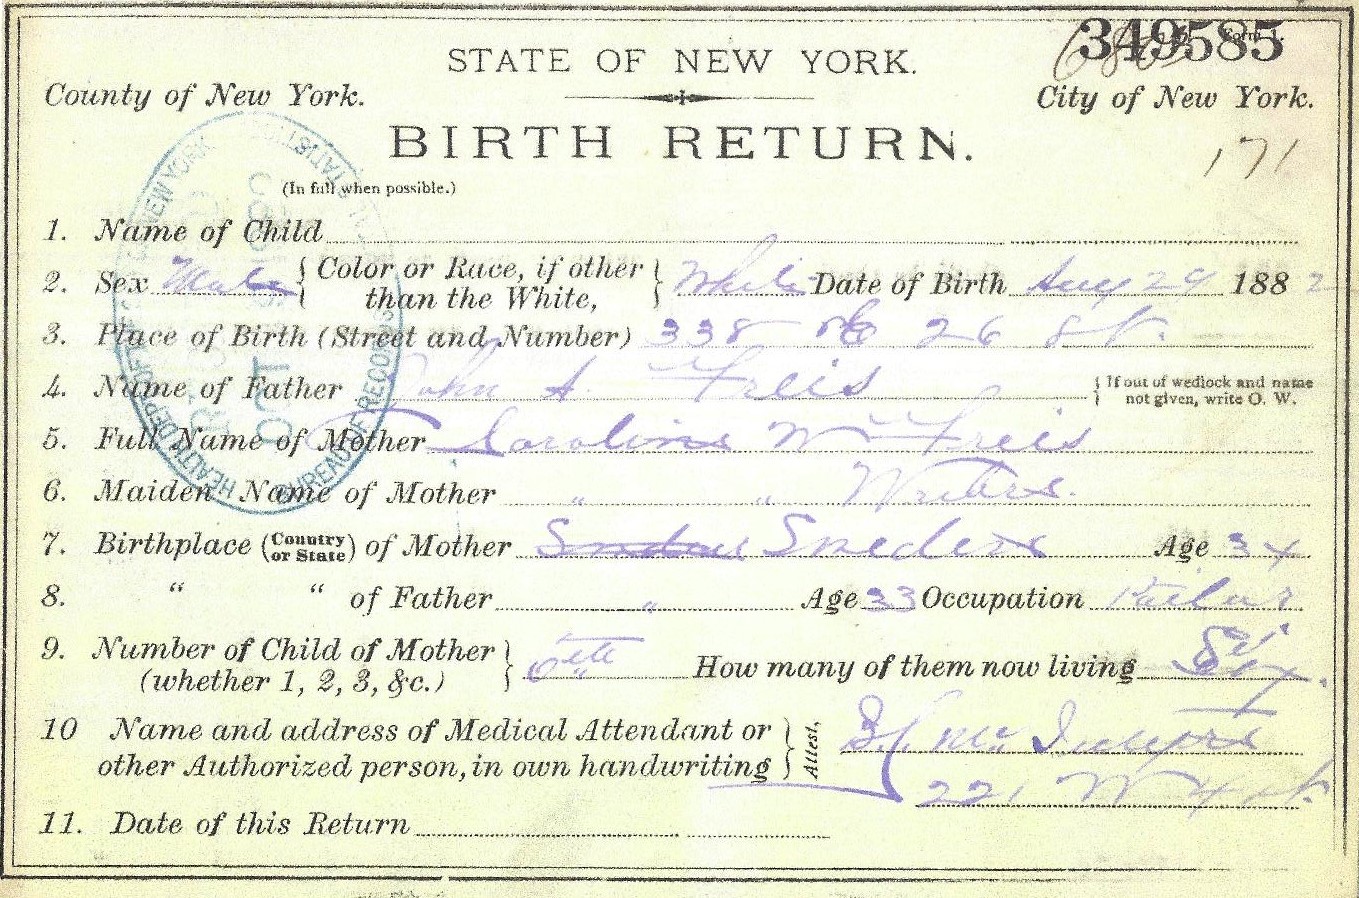 349585
STATE OF NEW YORK.
County of New York.
City of New York.
BIRTH RETURN.
171
(In full when possible.)
1. Name of Child
2. Sex Male { Color or Race, if other than the White, } White Date of Birth Aug 29 1882
3. Place of Birth (Street and Number) 338 E 26 St.
4. Name of Father John A. Freis { If out of wedlock and name not given, write O. W.
5. Full Name of Mother Caroline W Freis
6. Maiden Name of Mother " "
7. Birthplace (Country or State) of Mother Sweden Age 34
8. " " of Father " Age 33 Occupation Tailor
9. Number of Child of Mother (whether 1, 2, 3, &c.) } 6th How many of them now living Six.
10 Name and address of Medical Attendant or other Authorized person, in own handwriting } Attest, Mc
221 W 4 St.
11. Date of this Return
HEALTH DEPT. OF NEW YORK
BUREAU OF RECORDS